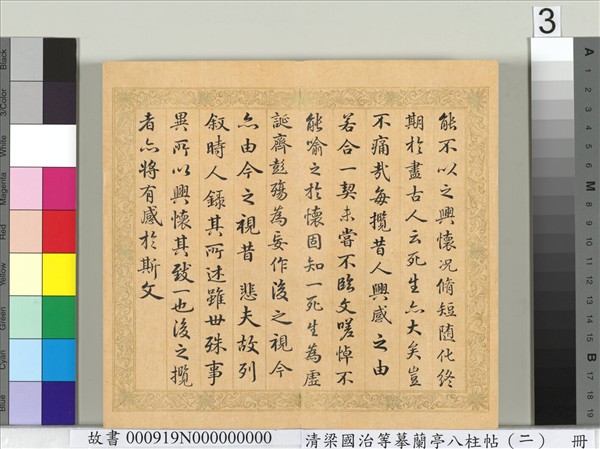 3
能不以之興懷况脩短随化終
期於盡古人云死生亦大矣豈
不痛㢤每攬昔人興感之由
若合一契未甞不臨文嗟悼不
能喻之於懷固知一死生為虛
誕齊彭殤為妄作後之視今
亦由今之視昔 悲夫故列
叙時人録其所述雖世殊事
異所以興懷其致一也後之攬
者亦將有感於斯文
故書 000919N000000000
清梁國治等摹蘭亭八柱帖(二) 冊
Black
3/Color
White
Magenta
Red
Yellow
Green
Cyan
Blue
A
1
2
3
4
5
6
M
8
9
10
11
12
13
14
15
B
17
18
19